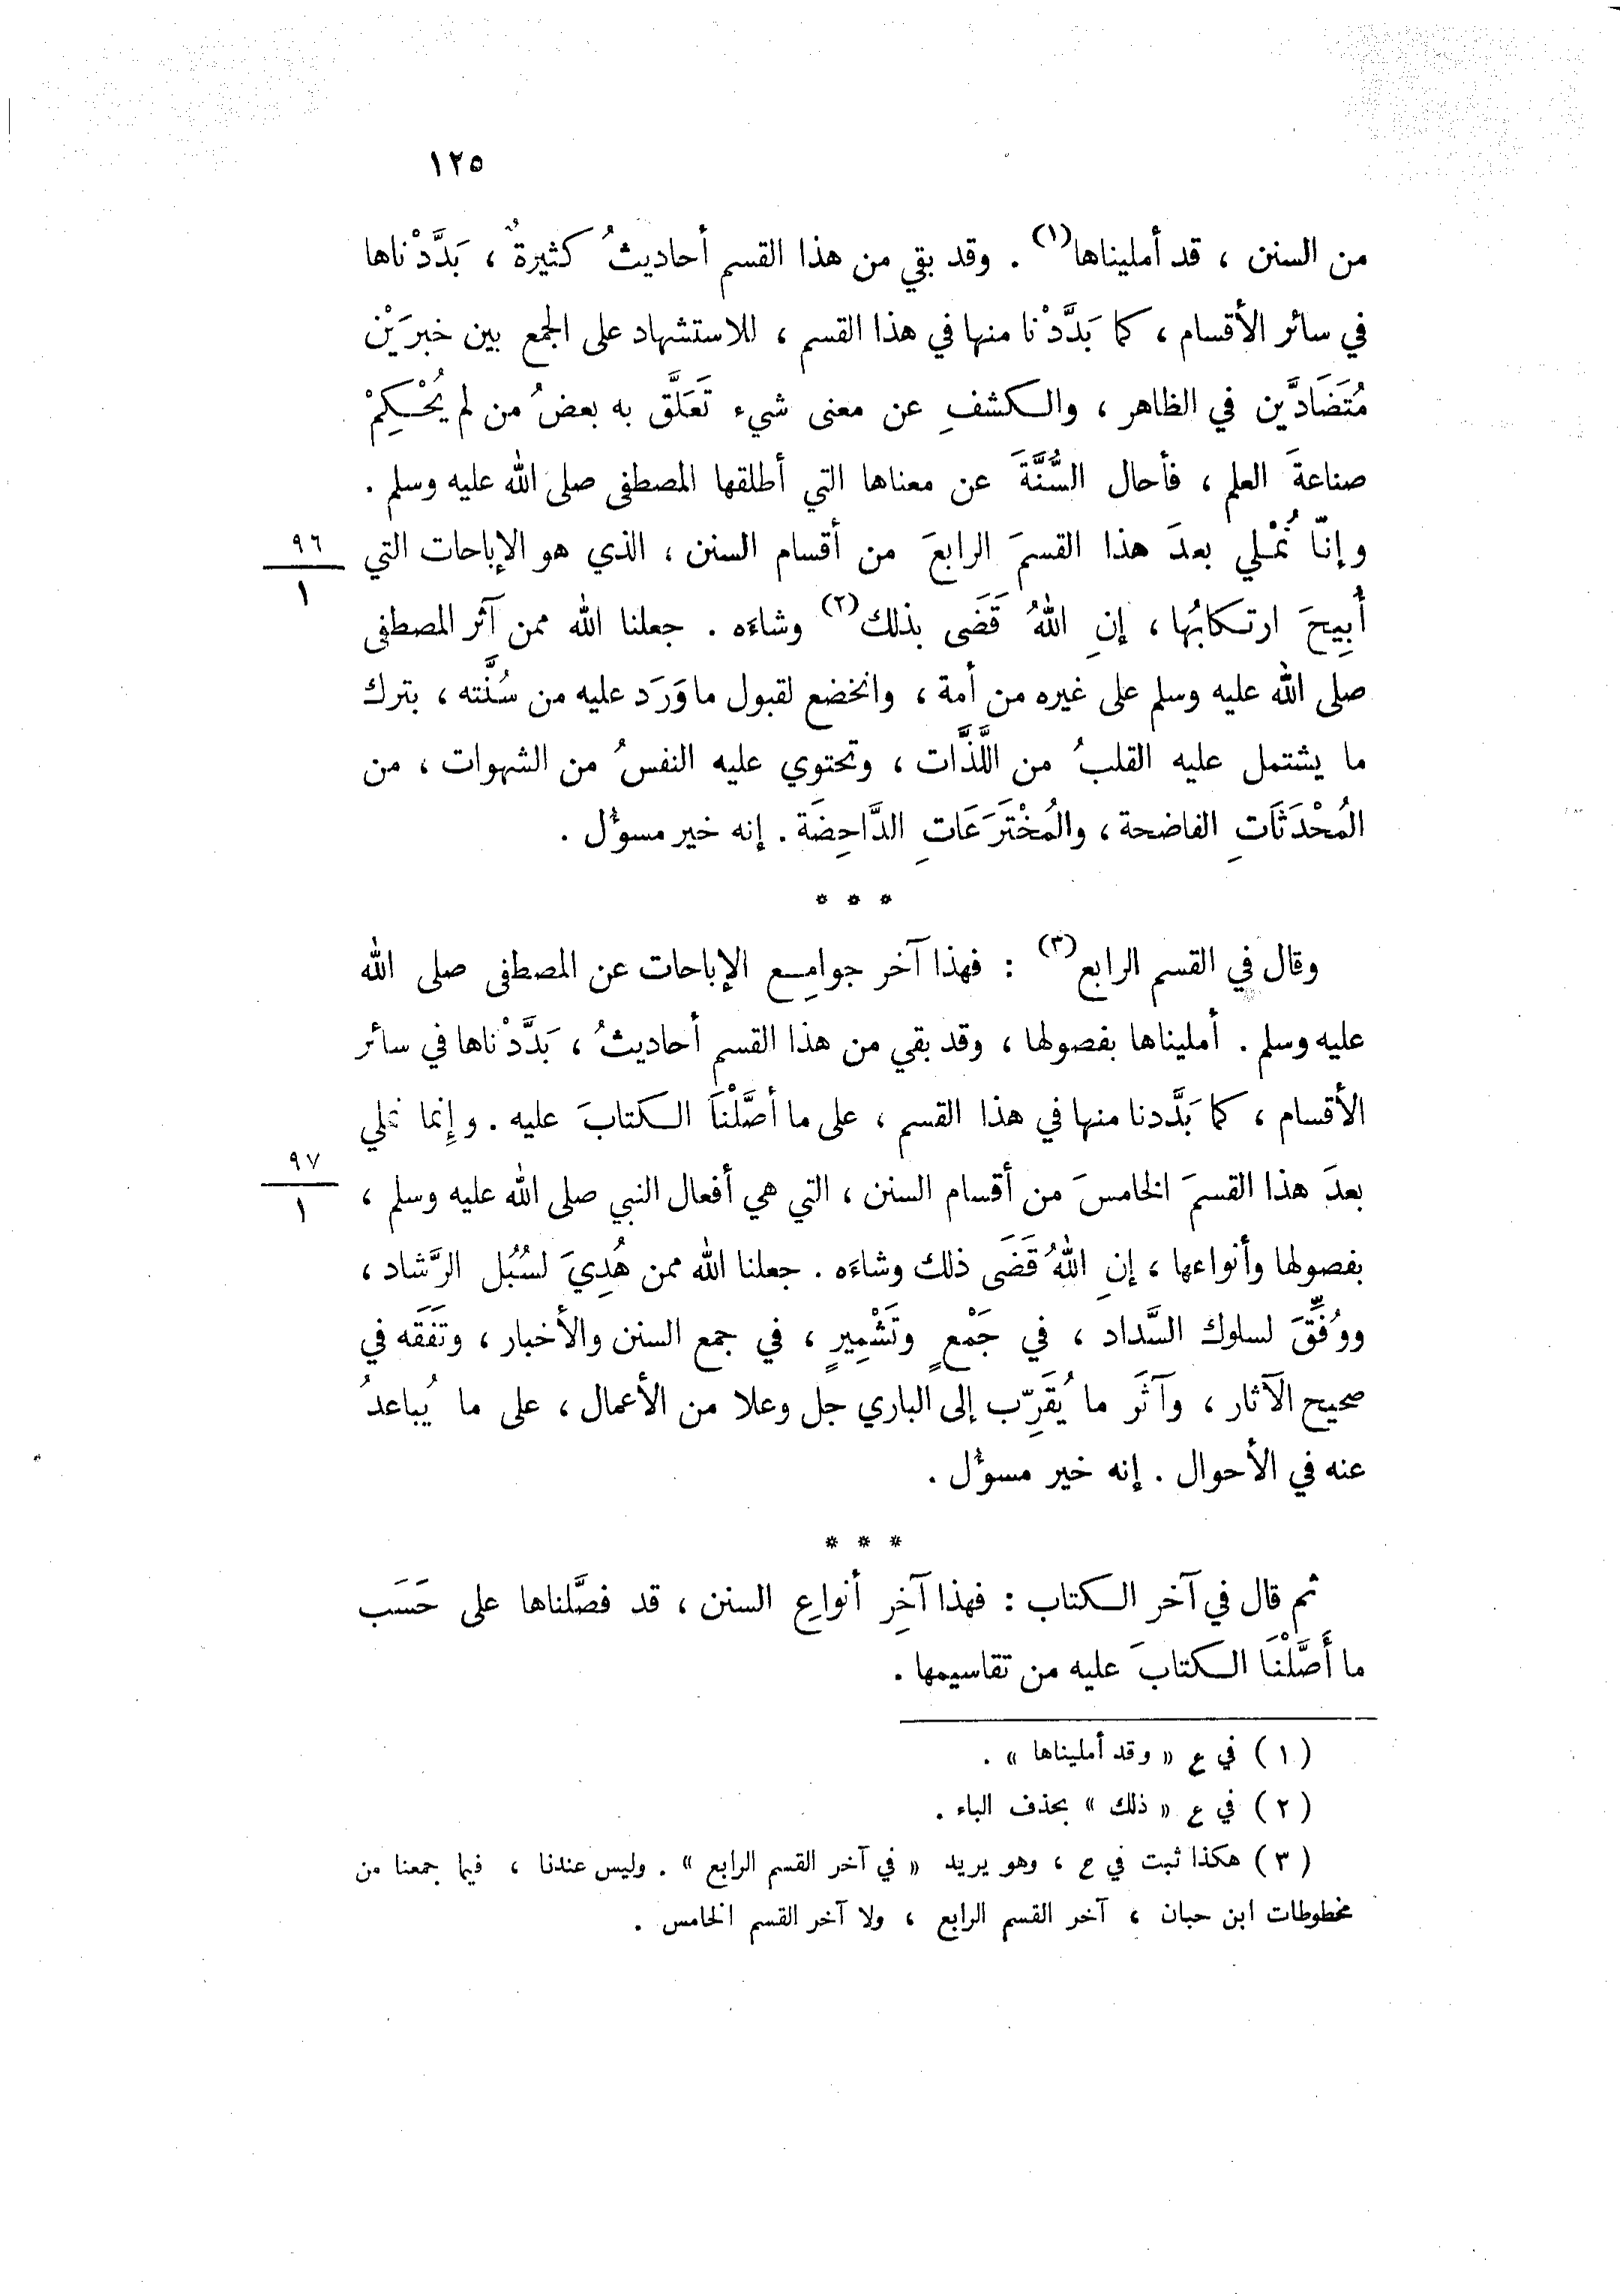 ١٢٥
من السنن ، قد أمليناها(١) . وقد بقي من هذا القسم أحاديثُ كثيرةٌ ، بَدَّدْناها
في سائر الأقسام ، كما بَدَّدْنا منها في هذا القسم ، للاستشهاد على الجمع بين خبرَيْن
مُتَضَادَّين في الظاهر ، والكشفِ عن معنى شيء تَعَلَّق به بعضُ من لم يُحْكِمْ
صناعةَ العلم ، فأحال السُّنَّةَ عن معناها التي أطلقها المصطفى صلى الله عليه وسلم .
وإنّا نُمْلي بعدَ هذا القسمَ الرابعَ من أقسام السنن ، الذي هو الإباحات التي
٩٦
١
أُبِيحَ ارتكابُها ، إنِ اللهُ قَضَى بذلك(٢) وشاءَه . جعلنا الله ممن آثر المصطفى
صلى الله عليه وسلم على غيره من أمة ، وانخضع لقبول ما وَرَد عليه من سُنَّته ، بترك
ما يشتمل عليه القلبُ من اللَّذَّات ، وتحتوي عليه النفسُ من الشهوات ، من
المُحْدَثَاتِ الفاضحة ، والمُخْتَرَعَاتِ الدَّاحِضَة . إنه خير مسؤل .
* * *
وقال في القسم الرابع(٣) : فهذا آخر جوامِع الإباحات عن المصطفى صلى الله
عليه وسلم . أمليناها بفصولها ، وقد بقي من هذا القسم أحاديثُ ، بَدَّدْناها في سائر
الأقسام ، كما بَدَّدنا منها في هذا القسم ، على ما أصَّلْنَا الكتابَ عليه . وإنما نملي
٩٧
١
بعدَ هذا القسمَ الخامسَ من أقسام السنن ، التي هي أفعال النبي صلى الله عليه وسلم ،
بفصولها وأنواعها ، إنِ اللهُ قَضَى ذلك وشاءَه . جعلنا الله ممن هُدِيَ لسُبُل الرَّشاد ،
ووُفِّقَ لسلوك السَّداد ، في جَمْعٍ وتَشْمِيرٍ ، في جمع السنن والأخبار ، وتَفَقه في
صحيح الآثار ، وآثَر ما يُقَرِّب إلى الباري جل وعلا من الأعمال ، على ما يُباعدُ
عنه في الأحوال . إنه خير مسؤل .
* * *
ثم قال في آخر الكتاب : فهذا آخِر أنواعِ السنن ، قد فصَّلناها على حَسَب
ما أَصَّلْنَا الكتابَ عليه من تقاسيمها .
(١) في ع « وقد أمليناها » .
(٢) في ع « ذلك » بحذف الباء .
(٣) هكذا ثبت في ح ، وهو يريد « في آخر القسم الرابع » . وليس عندنا ، فيما جمعنا من
مخطوطات ابن حبان ، آخر القسم الرابع ، ولا آخر القسم الخامس .